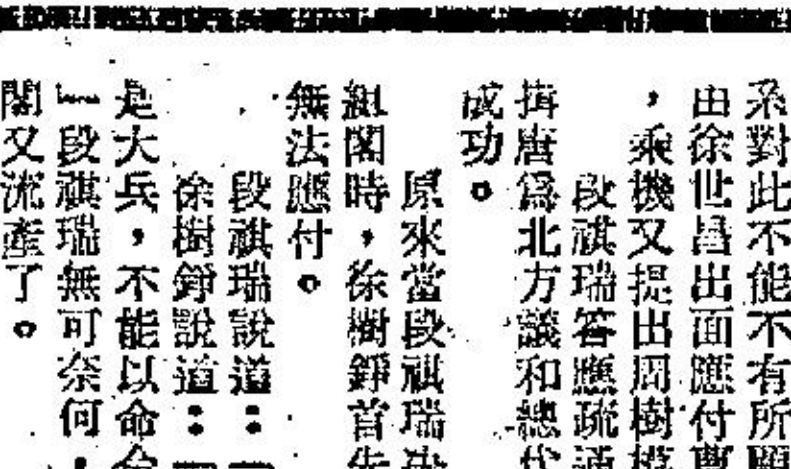 系對此不能不有所顧
由徐世昌出面應付曹
，乘機又提出周樹模
段祺瑞答應疏通
揖唐爲北方議和總代
成功。
原來當段祺瑞決
組閣時，徐樹錚首先
無法應付。
段祺瑞說道：
徐樹錚說道：
是大兵，不能以命令
段祺瑞無可奈何，
閣又流產了。